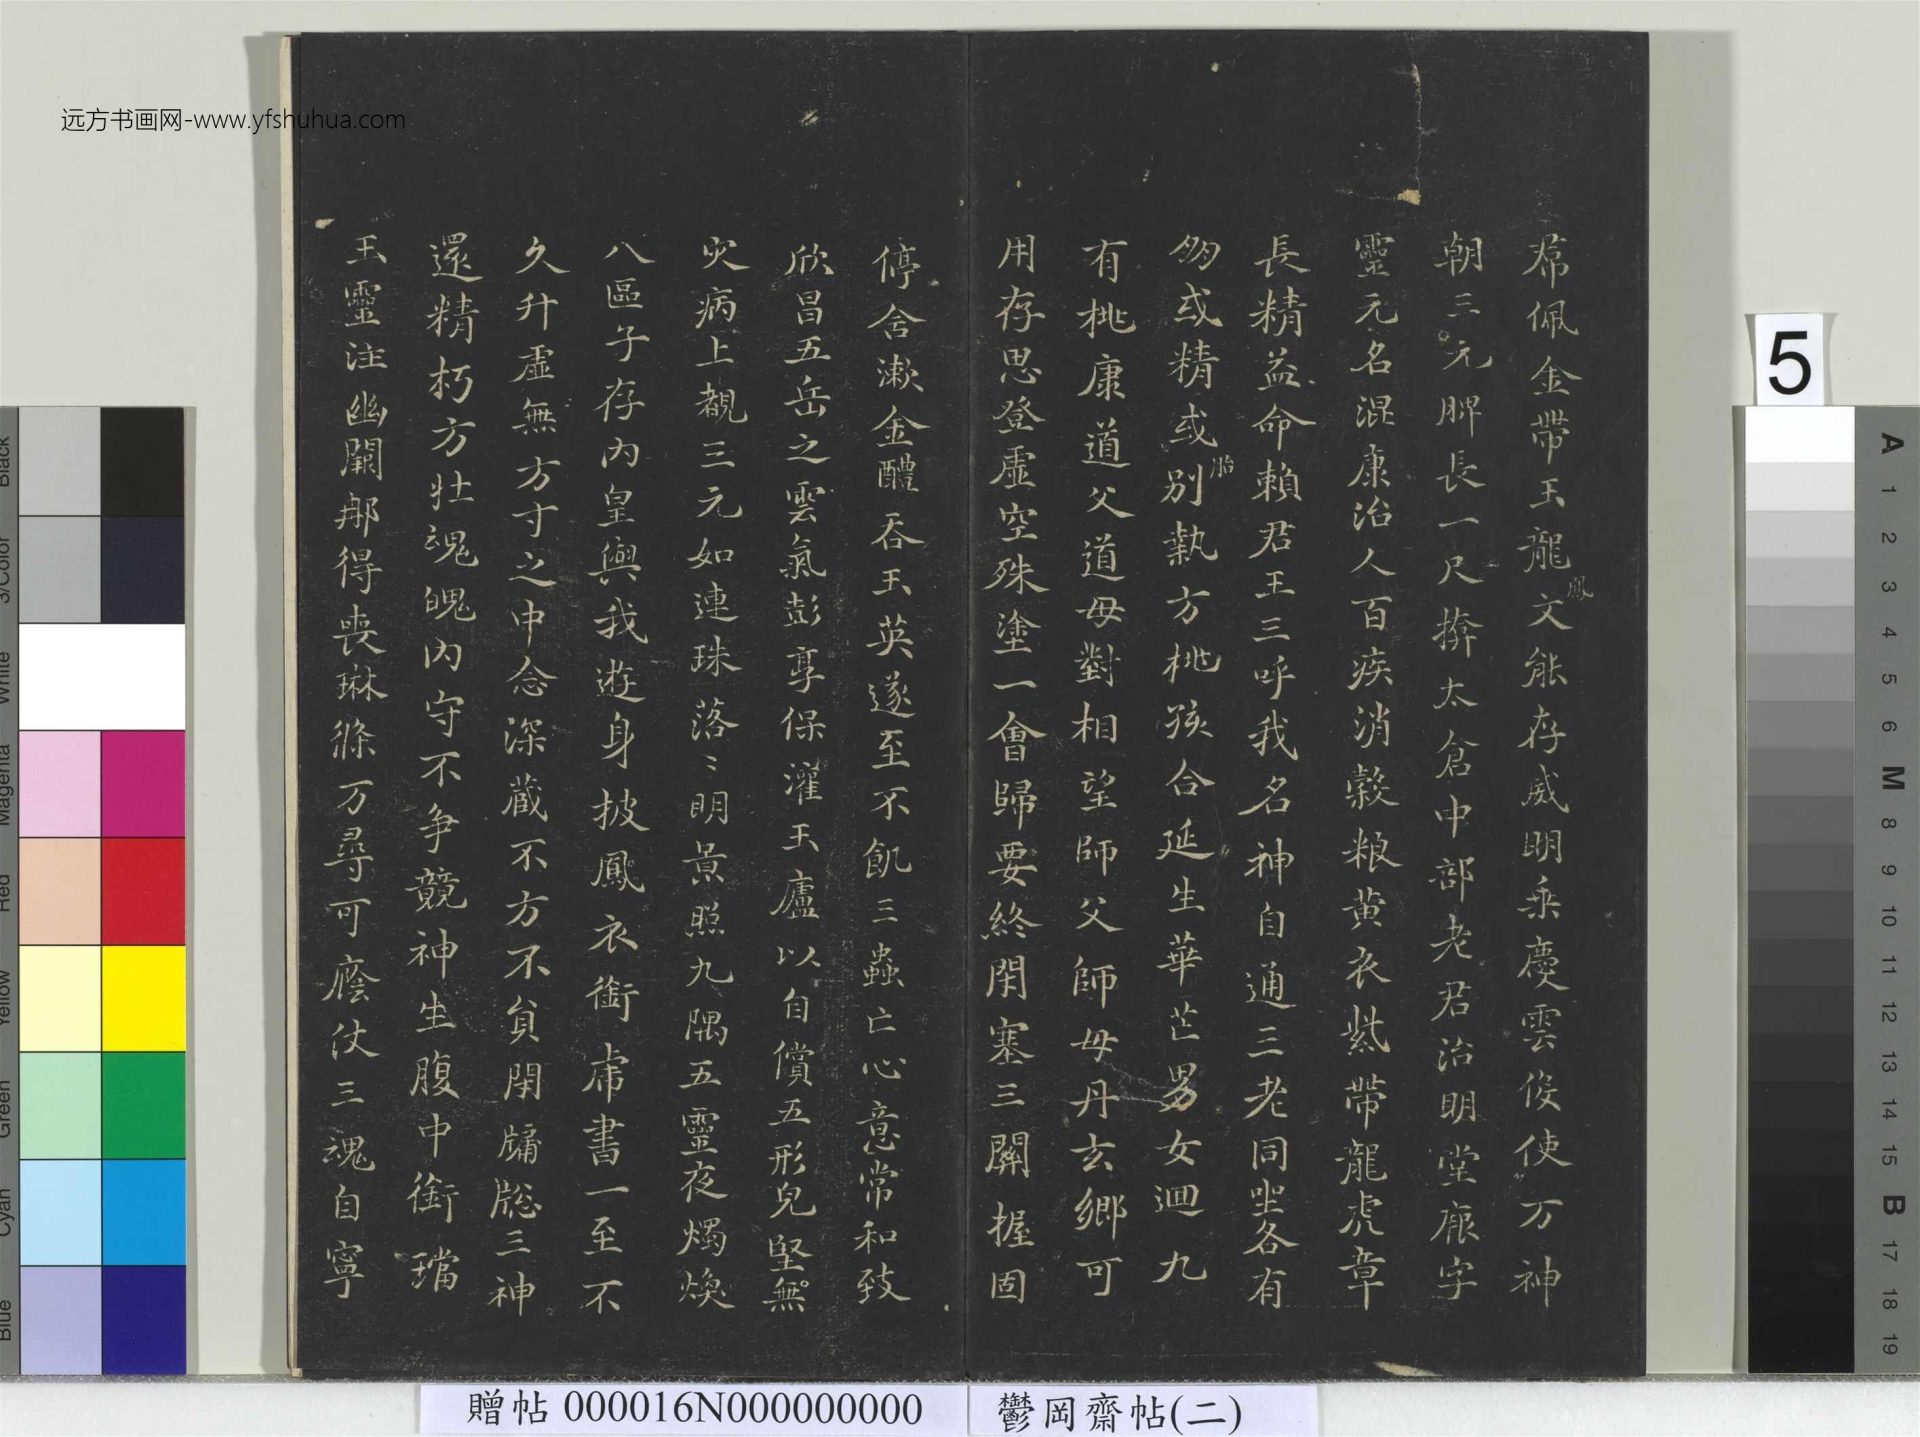 帬佩金帶玉龍文能存威明乘慶雲俊使万神
鳳
朝三元脾長一尺揜太倉中部老君治明堂厥字
靈元名混康治人百疾消穀粮黄衣紫帶龍虎章
長精益命賴君王三呼我名神自通三老同坐各有
朋或精或别執方桃孩合延生華芒男女迴九
胎
有桃康道父道母對相望師父師母丹玄鄉可
用存思登虛空殊塗一會歸要終閇塞三關握固
停含漱金醴吞玉英遂至不飢三蟲亡心意常和致
欣昌五岳之雲氣彭亨保灌玉廬以自償五形皃堅無
灾病上覩三元如連珠落〻明景照九隅五靈夜燭煥
八區子存内皇與我遊身披鳳衣銜虎書一至不
久升虛無方寸之中念深藏不方不負閇牖牎三神
還精朽方壮魂魄内守不争競神生腹中銜璫
玉靈注幽闕那得喪琳條万尋可廕仗三魂自寧
远方书画网-www.yfshuhua.com
5
Black
3/Color
White
Magenta
Red
Yellow
Green
Cyan
Blue
A
1
2
3
4
5
6
M
8
9
10
11
12
13
14
15
B
17
18
19
贈帖 000016N000000000
鬱岡齋帖(二)